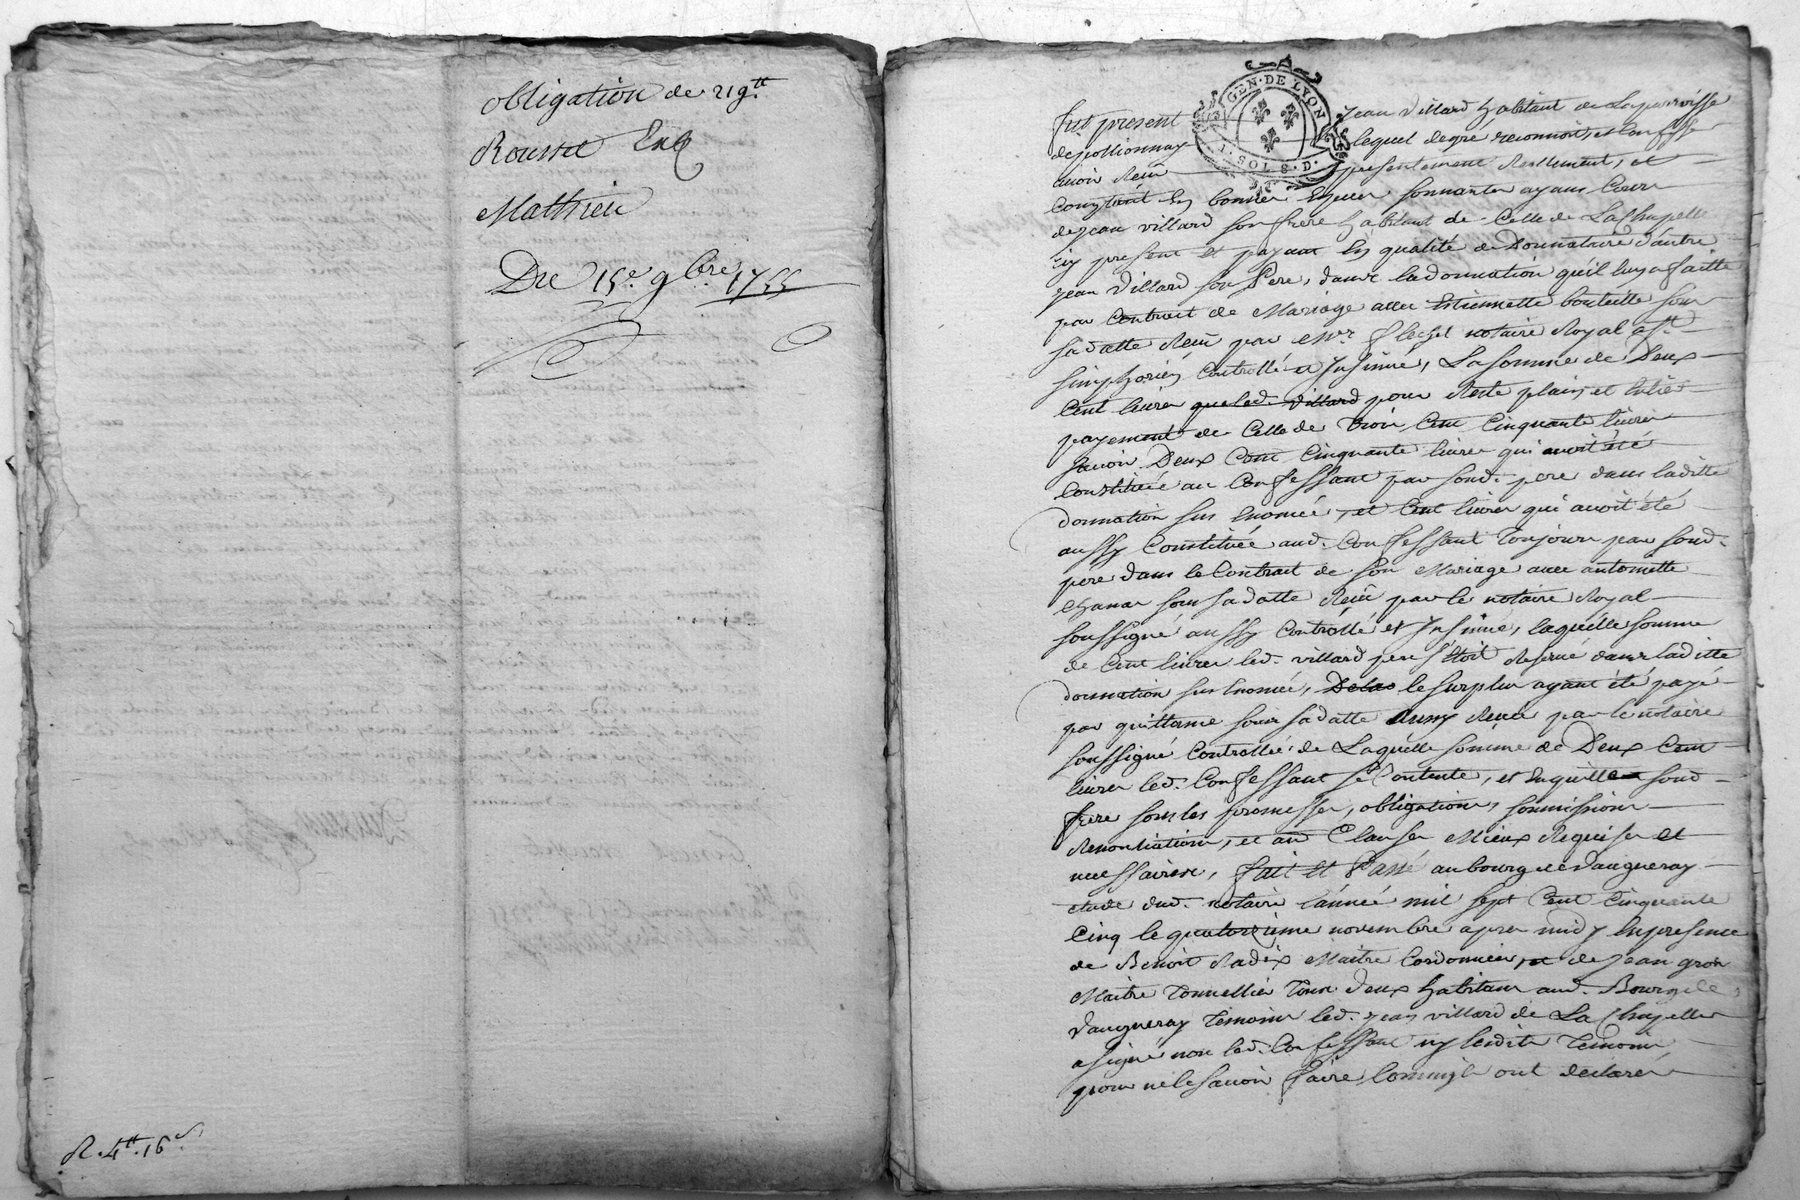 obligation de 219.tt
Rousset
Mathieu
Du 15e. 9bre. 1755
R. 4tt. 16s
GEN. DE LYON
1. SOL 8. D.
fut present Jean Villard habitant de La parroisse
de pollionnay lequel de gré reconnoit, et confesse
avoir Receu presentement Reellement, et
Comptant En bonnes Especes sonnantes ayans Cours
de jean villard son frere habitant de Celle de La Chapelle
icy present et payant En qualité de Donnataire d'autre
jean Villard son Pere, dans la donnation qu'il luy a faitte
par Contrait de Mariage avec Estiennette bouteille sous
sa datte Receu par Mr. flechet notaire Royal a St.
simphorien Controllé et Insinué, La somme de Deux
Cent livres que led. Villard pour Reste plain, et Entier
payement de Celle de trois Cent Cinquante livres
savoir Deux Cent Cinquante livres qui avoit été
Constituée au Confessant par sond. pere dans laditte
donnation sus Enoncée, et Cent livres qui avoit été
aussy Constituée aud. Confessant toujours par sond.
pere dans le Contrait de son Mariage avec antoinette
sous sa datte Receu par le notaire Royal
soussigné aussy Controllé et Insinué, laquelle somme
de Cent livres led. villard pere s'étoit Reservé dans laditte
donnation sus Enoncée, le surplus ayant été payé
par quittance sous sa datte aussy Receue par le notaire
soussigné Controllée, de Laquelle somme de Deux Cent
livres led. Confessant se Contente, et En quitte sond.
frere sous les promesses, obligations, soumissions
Renontiations, et aud. Clauses Mieux Requises et
necessaires, fait et Passé au bourg de Vaugneray
étude dud. notaire l'année mil sept Cent Cinquante
Cinq le quatorzieme novembre apres midy En presence
de Benoit Radix Maitre Cordonnier, et de jean gros
Maitre tonnellier tous deux habitans aud. Bourg de
Vaugneray temoins led. jean villard de La Chapelle
a signé non led. Confessant ny lesdits temoins
pour ne le savoir faire, ont déclaré